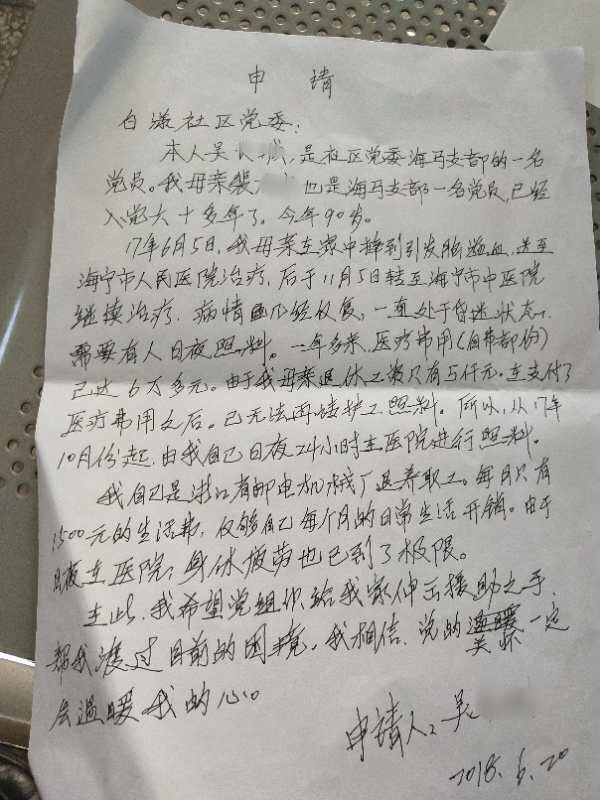 申 请
白漾社区党委:
本人吴 ,是社区党委海马支部的一名
党员。我母亲 也是海马支部一名党员,已经
入党六十多年了。今年90岁。
17年6月5日,我母亲在家中摔到引发脑溢血,送至
海宁市人民医院治疗,后于11月5日转至海宁市中医院
继续治疗.病情 ,一直处于昏迷状态,
需要有人日夜照料。一年多来,医疗费用(自带部份)
已达6万多元。由于我母亲退休工资只有5仟元.在支付了
医疗费用之后。已无法再请护工照料。所以,从17年
10月份起,由我自己日夜24小时在医院进行照料。
我自己是浙江省邮电机械厂退养职工。每月只有
1500元的生活费,仅够自己每个月的日常生活开销。由于
日夜在医院,身体疲劳也已到了极限。
在此,我希望党组织给我家伸出援助之手,
帮我渡过目前的困境,我相信,党的 关怀一定
会温暖我的心。
申请人:吴
2018.6.20